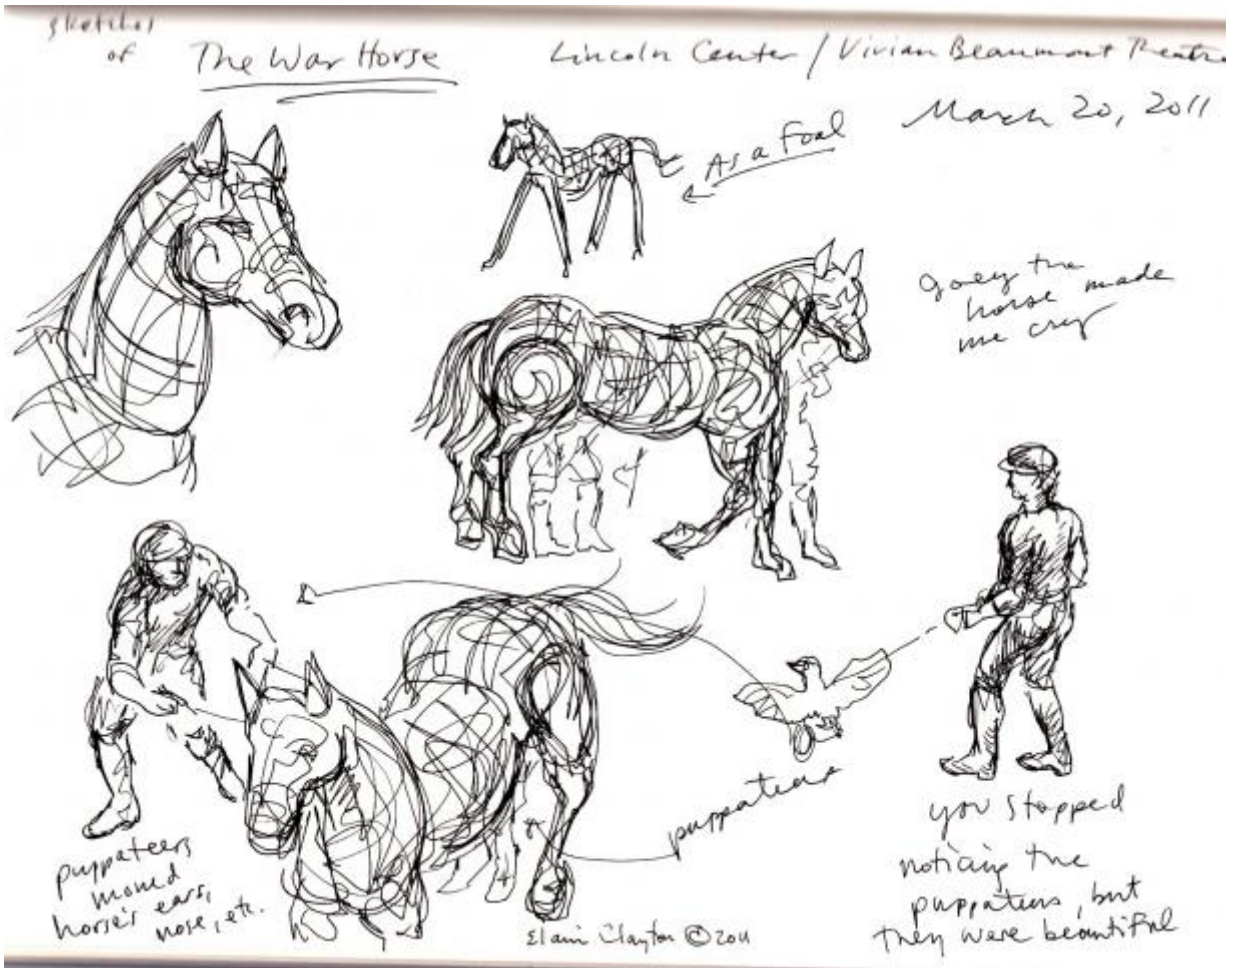 sketches
of The War Horse
Lincoln Center / Vivian Beaumont Theatre
March 20, 2011
As a Foal
Joey the
horse made
me cry
puppateers
puppateers
moved
horse's ears,
nose, etc.
you stopped
noticing the
puppateers, but
they were beautiful
Elain Clayton © 2011